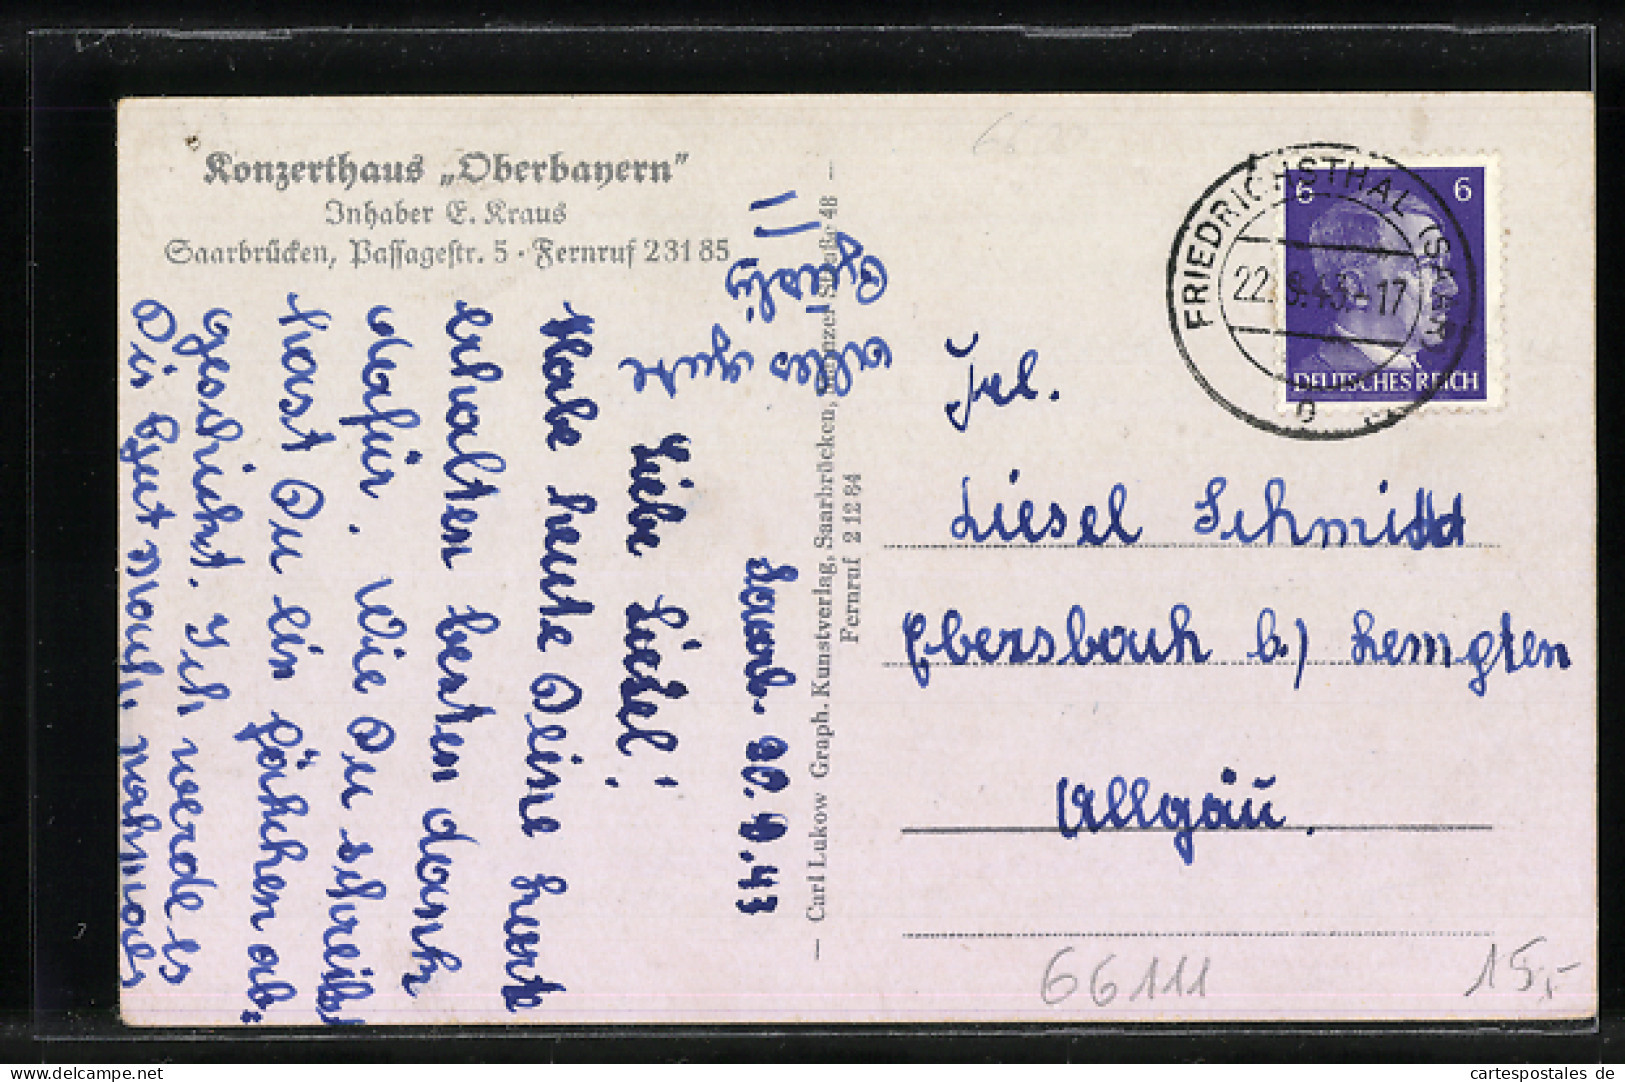 Konzerthaus „Oberbayern"
Inhaber E. Kraus
Saarbrücken, Passagestr. 5 · Fernruf 23185
Saarb. 20.9.43
Liebe Liesel!
Habe heute Deine Karte
erhalten besten dank
dafür. Wie Du schreibst
hast Du ein päkchen ab=
geschickt. Ich werde es
Dir gut nochmals
alles gute
— Carl Lukow Graph. Kunstverlag, Saarbrücken, Mainzer Straße 48 —
Fernruf 21284
FRIEDRICHSTHAL (SAAR)
22.9.43.-17
b
6 6
DEUTSCHES REICH
Frl.
Liesel Schmidt
Ebersbach b./ Kempten
Allgäu.
66111
15,-
www.cartespostales.eu
cartespostales de